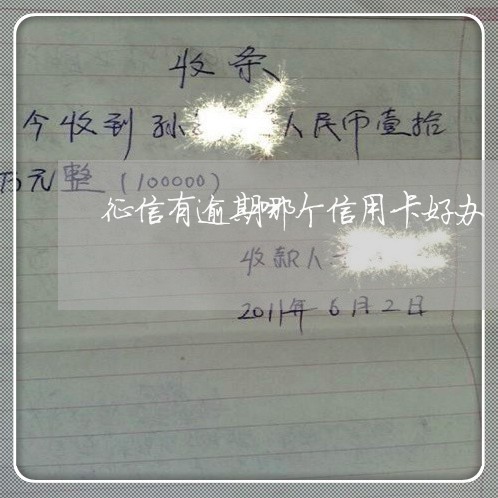 收条
今收到孙 人民币壹拾
万元整（100000）
征信有逾期哪个信用卡好办
收款人
2011年6月2日